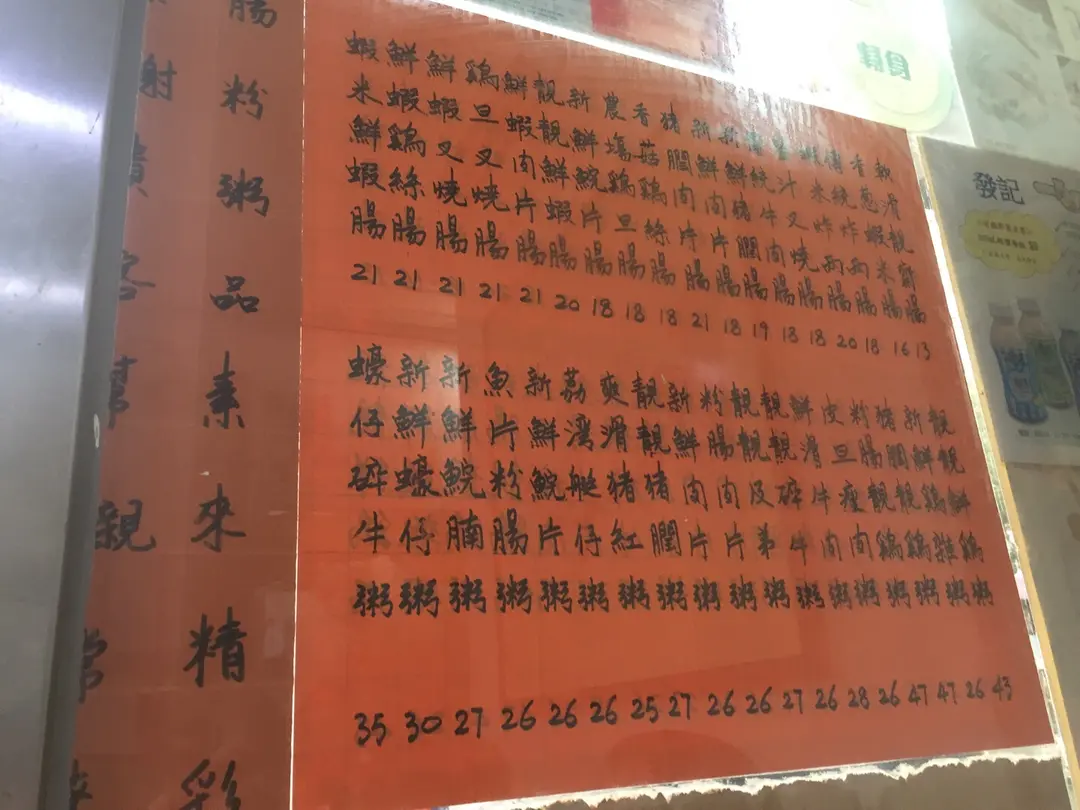 發記
軟滑靚齋腸 13
香蔥蝦米腸 16
傳統炸両腸 18
蝦米炸両腸 20
汁叉燒腸 18
統牛肉腸 18
新鮮猪膶腸 19
新鮮肉片腸 18
猪膶肉片腸 21
香菇鷄絲腸 18
農場鷄旦腸 18
新鮮鯇片腸 18
靚靚鮮蝦腸 20
鮮蝦肉片腸 21
鷄旦叉燒腸 21
鮮蝦叉燒腸 21
鮮蝦鷄絲腸 21
蝦米鮮蝦腸 21
靚靚鮮鷄粥 43
新鮮鷄雜粥 26
猪膶靚鷄粥 47
粉腸靚鷄粥 47
皮旦瘦肉粥 26
鮮滑牛肉粥 28
靚靚碎牛粥 26
靚靚及弟粥 27
粉腸肉片粥 26
新鮮肉片粥 26
靚靚猪膶粥 27
爽滑猪紅粥 25
荔灣艇仔粥 26
新鮮鯇片粥 26
魚片粉腸粥 26
新鮮鯇腩粥 27
新鮮蠔仔粥 30
蠔仔碎牛粥 35
腸粉粥品素來精彩
客幫親常